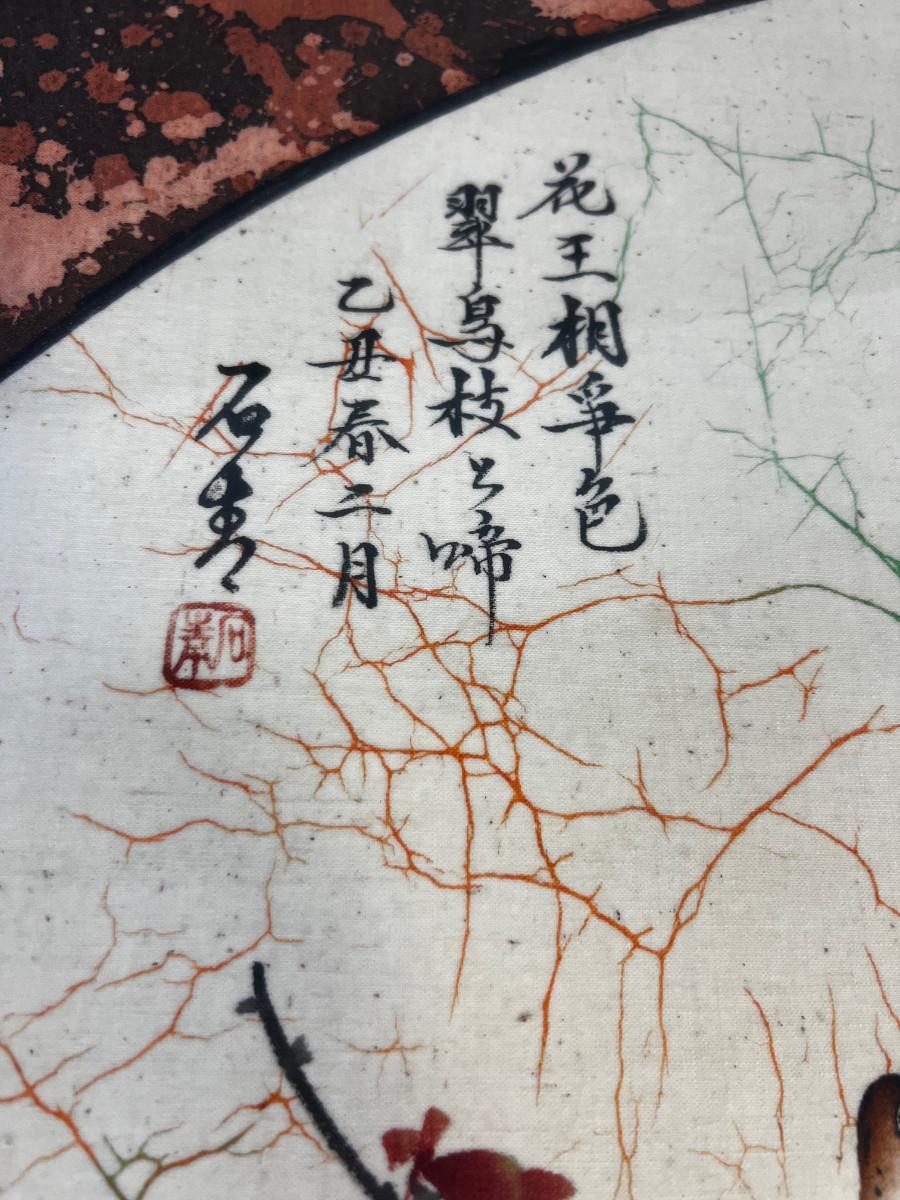 花王相爭色
翠鳥枝上啼
乙丑春二月
石青